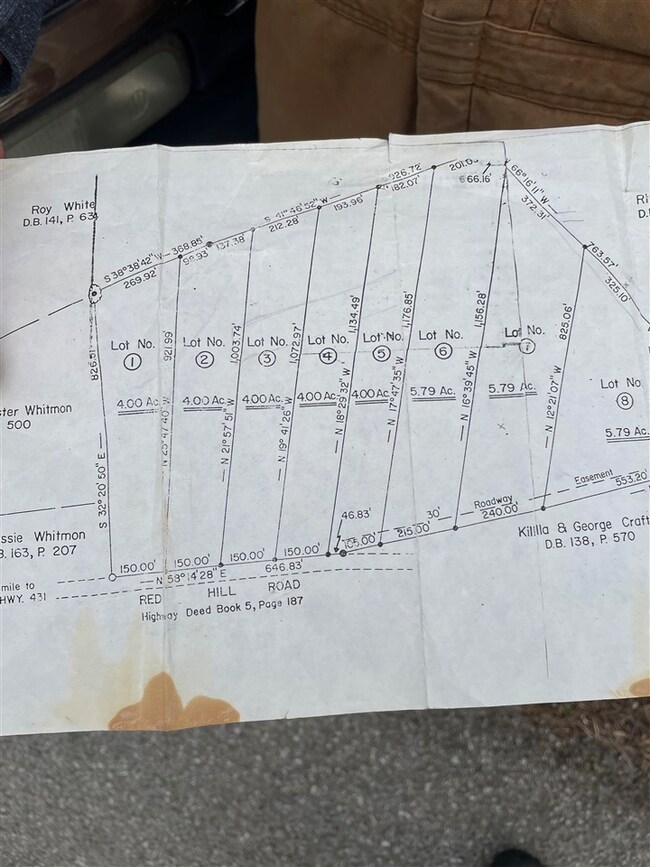 Roy White
D.B. 141, P. 63
S 38°38'42" W
368.85'
269.92'
98.93'
137.38'
S 41°46'52" W
212.28'
193.96'
926.72'
182.07'
201.0
66.16'
66°16'11" W
372.31'
763.57'
325.10'
826.51'
921.99'
1,003.74'
1,072.97'
1,134.49'
1,176.85'
1,156.28'
825.06'
Lot No.
1
Lot No.
2
Lot No.
3
Lot No.
4
Lot No.
5
Lot No.
6
Lot No.
7
Lot No
8
4.00 Ac.
4.00 Ac.
4.00 Ac.
4.00 Ac.
4.00 Ac.
5.79 Ac.
5.79 Ac.
5.79 Ac.
ster Whitmon
500
S 32°20'50" E
N 21°57'51" W
N 19°41'26" W
N 18°29'32" W
N 17°47'35" W
N 16°39'45" W
N 12°21'07" W
ssie Whitmon
B. 163, P. 207
mile to
HWY. 431
150.00'
150.00'
150.00'
150.00'
46.83'
30'
Roadway
Easement
553.20'
215.00'
240.00'
N 53°14'28" E
646.83'
RED HILL ROAD
Highway Deed Book 5, Page 187
Kililla & George Craft
D.B. 138, P. 570